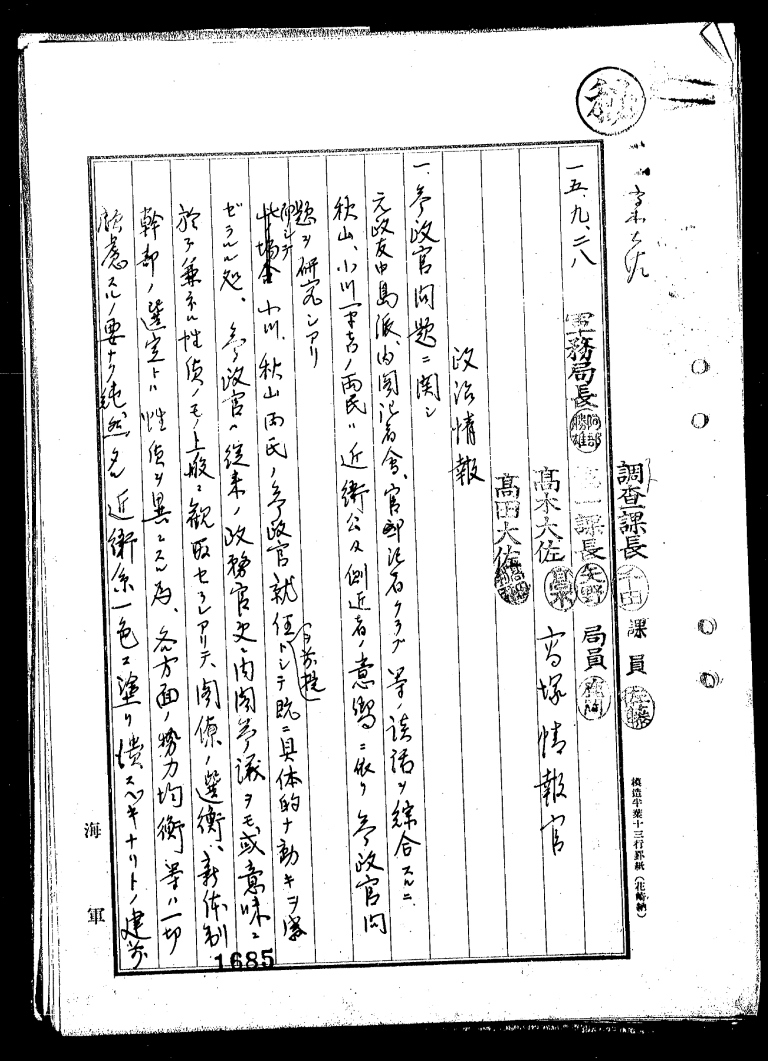 高木大佐
調査課長 千田 課員 佐藤
一五、九、二八 軍務局長 阿部勝雄 第一課長 矢野 局員
高木大佐 高木 高塚情報官
高田大佐
政治情報
一、参政官問題ニ関シ
元政友中島派、内閣記者会、官邸記者クラブ等ノ談話ヲ綜合スルニ
秋山、小川両氏ハ近衛公及側近者ノ意嚮ニ依リ参政官問
題ヲ研究シアリ
而シテ此ノ場合小川、秋山両氏ノ参政官就任ヲ前提トシテ既ニ具体的ナ動キヲ
ゼラルル処、参政官ハ従来ノ政務官更ニ内閣参議ヲモ或意味ニ
於テ兼ネル性質ノモノト一般ニ観取セラレアリテ、閣僚ノ選衡、新体制
幹部ノ選定トハ性質ヲ異ニスル為、各方面ノ勢力均衡等ハ一切
顧慮スルノ要ナク純然タル近衛系一色ニ塗リ潰スベキナリトノ建前
海軍
1685
模造半葉十三行罫紙（花崎納）